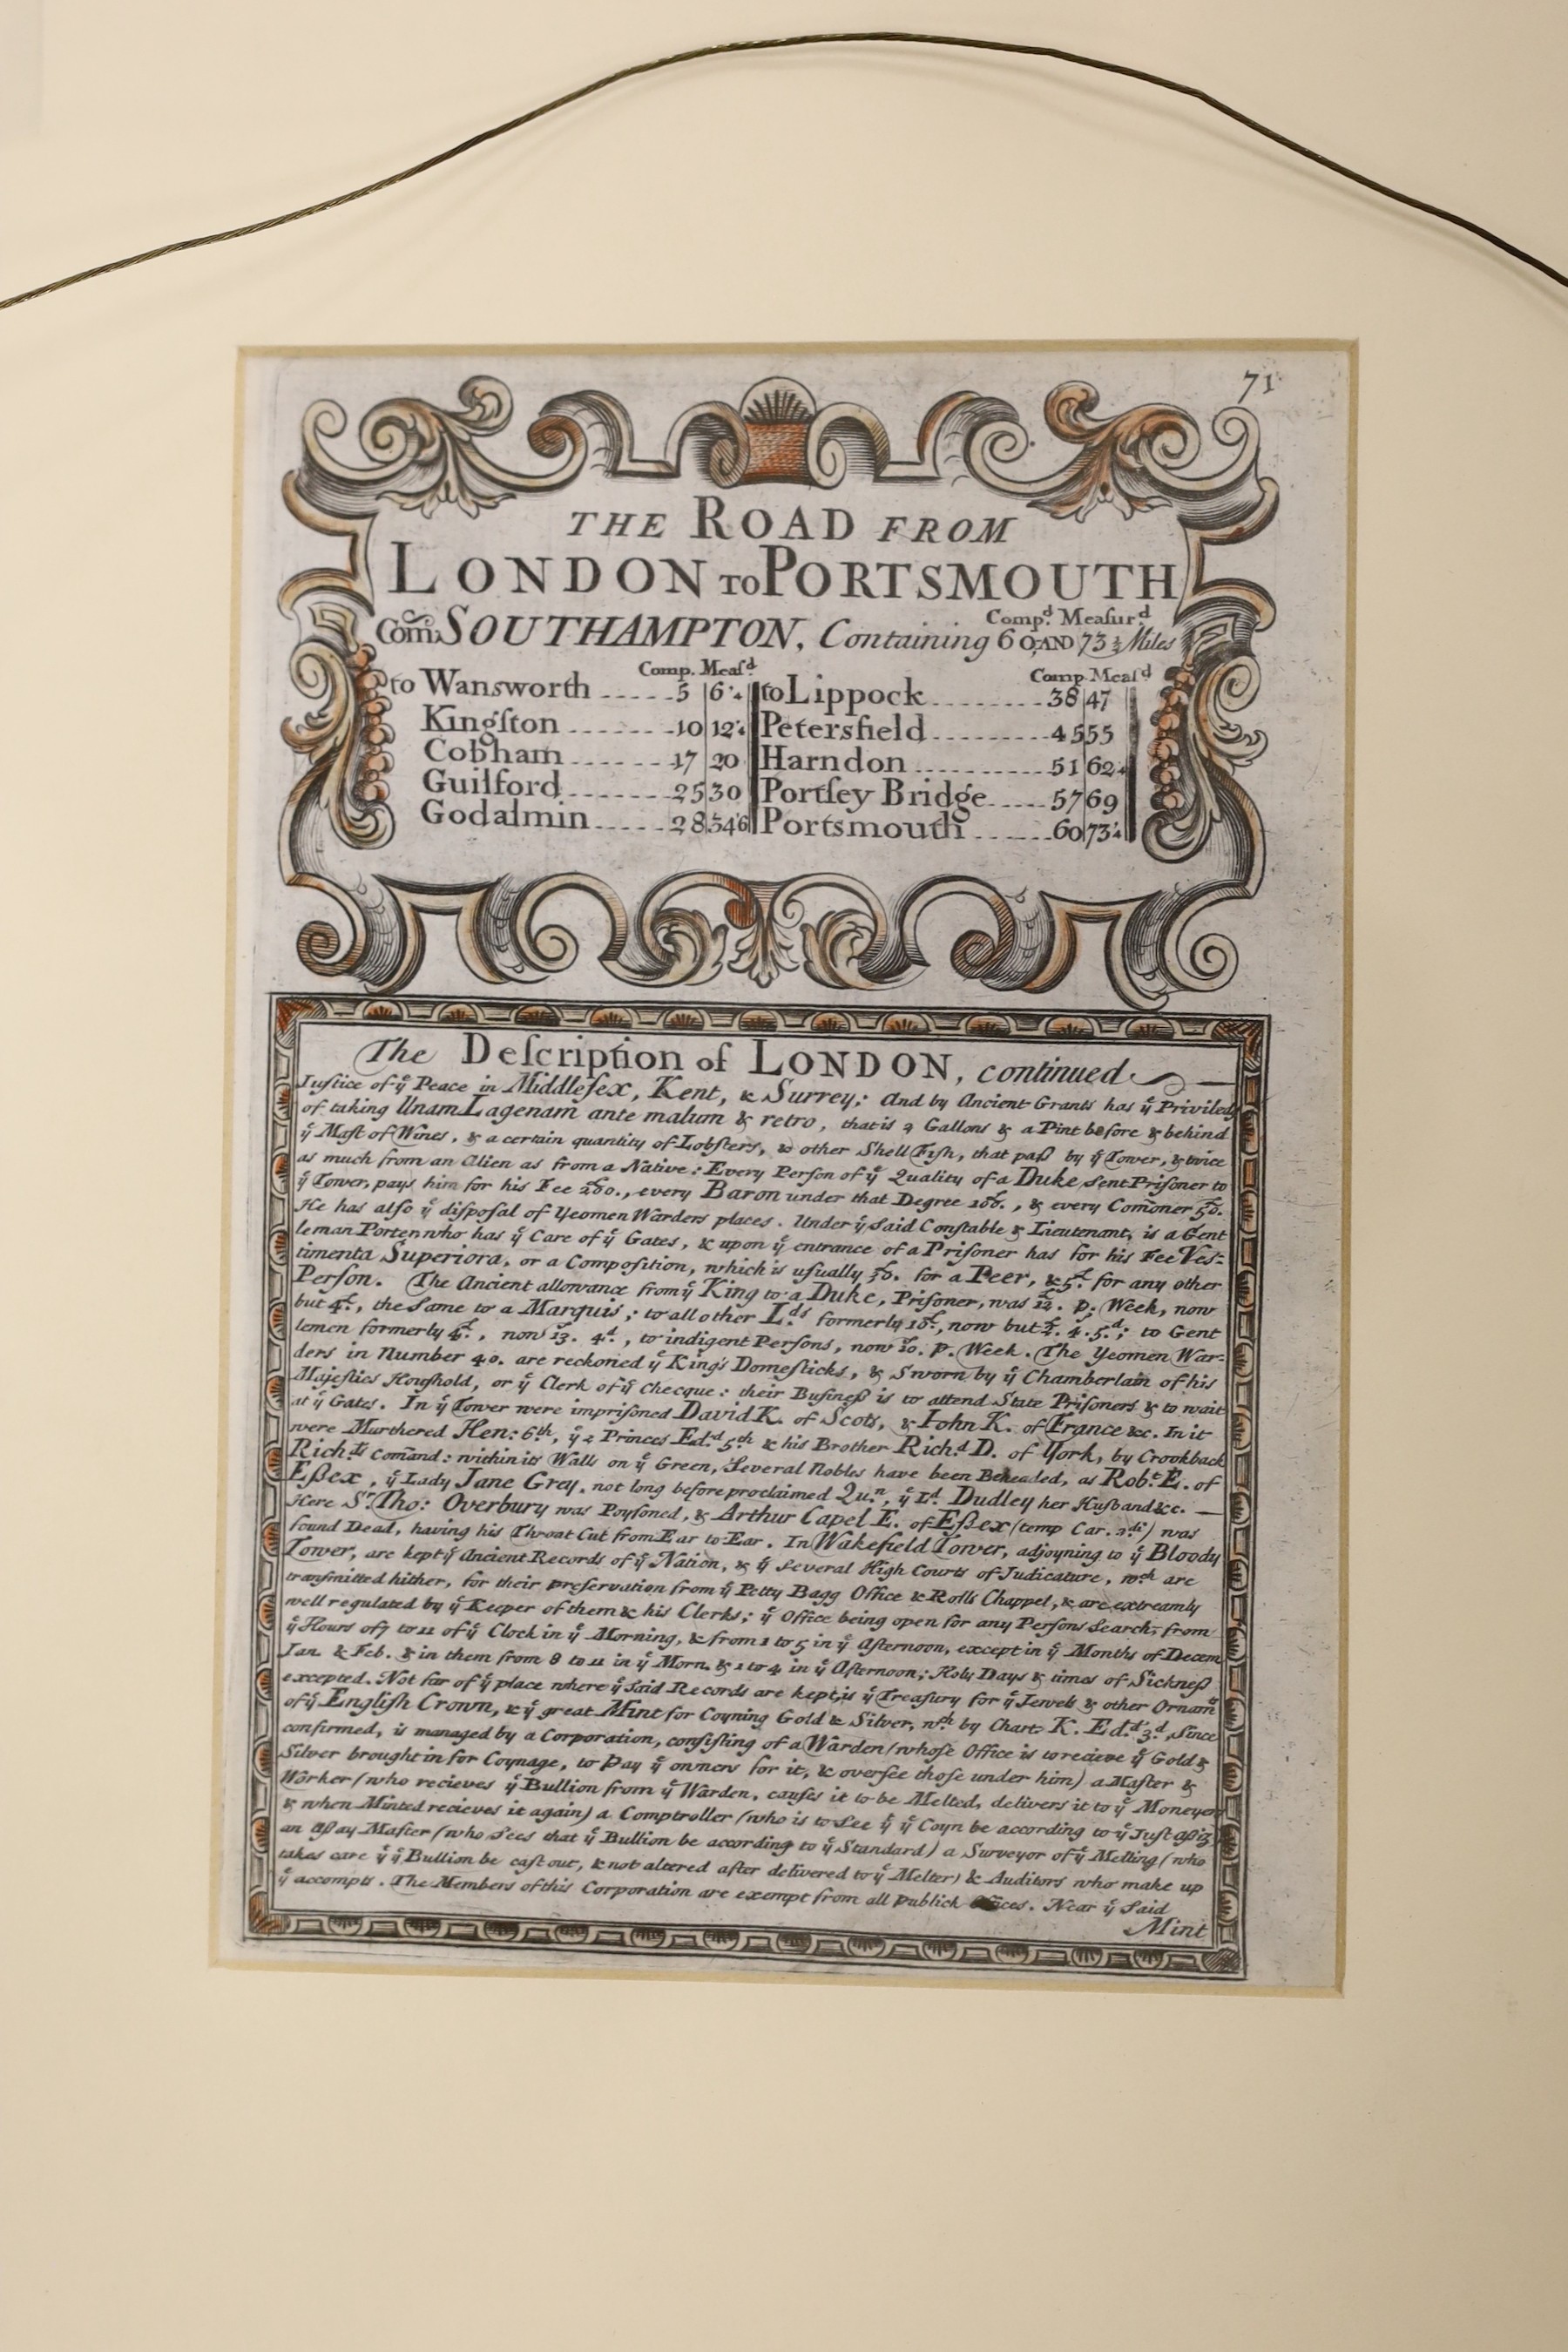 71
THE ROAD FROM
LONDON TO PORTSMOUTH
Compd. Meaſurd
Com. SOUTHAMPTON, Containing 60 AND 73½ Miles
Comp. Meaſd
to Wansworth 5 6
Kingſton 10 12
Cobham 17 20
Guilford 25 30
Godalmin 28 34
Comp Meaſd
to Lippock 38 47
Petersfield 45 55
Harndon 51 62
Portſey Bridge 57 69
Portsmouth 60 73
The Deſcription of LONDON, continued
Juſtice of ye Peace in Middleſex, Kent, & Surrey; And by Ancient Grants has ye Priviledg
of taking Unam Lagenam ante malum & retro, that is 2 Gallons & a Pint before & behind
ye Maſt of Wines, & a certain quantity of Lobſters, & other Shell Fiſh, that paſs by ye Tower, & twice
as much from an Alien as from a Native: Every Perſon of ye Quality of a Duke, ſent Priſoner to
ye Tower, pays him for his Fee 20£., every Baron under that Degree 10£., & every Comoner 5£.
He has alſo ye diſposal of Yeomen Warders places. Under ye ſaid Conſtable & Lieutenant, is a Gent
leman Porter, who has ye Care of ye Gates, & upon ye entrance of a Priſoner has for his Fee Veſ-
timenta Superiora, or a Compoſition, which is uſually for a Peer, & for any other
Perſon. The Ancient allowance from ye King to a Duke, Priſoner, was 12£. p. Week, now
but 4£., the ſame to a Marquis; to all other Lds formerly 10£., now but 2£. 4. 5d; to Gent
lemen formerly 4£., now 13. 4d., to indigent Perſons, now 10. p. Week. The Yeomen War-
ders in Number 40. are reckoned ye King's Domeſticks, & Sworn by ye Chamberlain of his
Majeſties Houſhold, or ye Clerk of ye Checque: their Buſineſs is to attend State Priſoners & to wait
at ye Gates. In ye Tower were impriſoned David K. of Scots, & Iohn K. of France &c. In it
were Murthered Hen: 6th, ye 2 Princes Edd. 5th & his Brother Richd D. of York, by Crookback
Richds comand: within its Walls on ye Green, ſeveral Nobles have been Beheaded, as Robt E. of
Eſsex, ye Lady Jane Grey, not long before proclaimed Qun, ye Ld Dudley her Huſband &c.
Here Sr. Tho: Overbury was Poyſoned, & Arthur Capel E. of Eſsex (temp Car. 2di) was
found Dead, having his Throat Cut from Ear to Ear. In Wakefield Tower, adjoyning to ye Bloody
Tower, are kept ye Ancient Records of ye Nation, & ye ſeveral High Courts of Judicature, wch are
tranſmitted hither, for their preſervation from ye Petty Bagg Office & Rolls Chappel, & are extreamly
well regulated by ye Keeper of them & his Clerks; ye Office being open for any Perſons Search, from
ye Hours of 7 to 11 of ye Clock in ye Morning, & from 1 to 5 in ye Afternoon, except in ye Months of Decem
Jan. & Feb. & in them from 8 to 11 in ye Morn. & 1 to 4 in ye Afternoon; Holy Days & times of Sickneſs
excepted. Not far of ye place where ye ſaid Records are kept, is ye Treaſury for ye Jewels & other Ornamts
of ye Engliſh Crown, & ye great Mint for Coyning Gold & Silver, wch by Chart. K. Edd. 3d, ſince
confirmed, is managed by a Corporation, conſiſting of a Warden (whoſe Office is to recieve ye Gold &
Silver brought in for Coynage, to Pay ye owners for it, & overſee thoſe under him) a Maſter &
Worker (who recieves ye Bullion from ye Warden, cauſes it to be Melted, delivers it to ye Moneyers
& when Minted recieves it again) a Comptroller (who is to ſee yt ye Coyn be according to ye Juſt Aſsiz
an Aſsay Maſter (who ſees that ye Bullion be according to ye Standard) a Surveyor of ye Melting (who
takes care yt ye Bullion be caſt out, & not altered after delivered to ye Melter) & Auditors who make up
ye accompts. The Members of this Corporation are exempt from all publick. Near ye ſaid
Mint